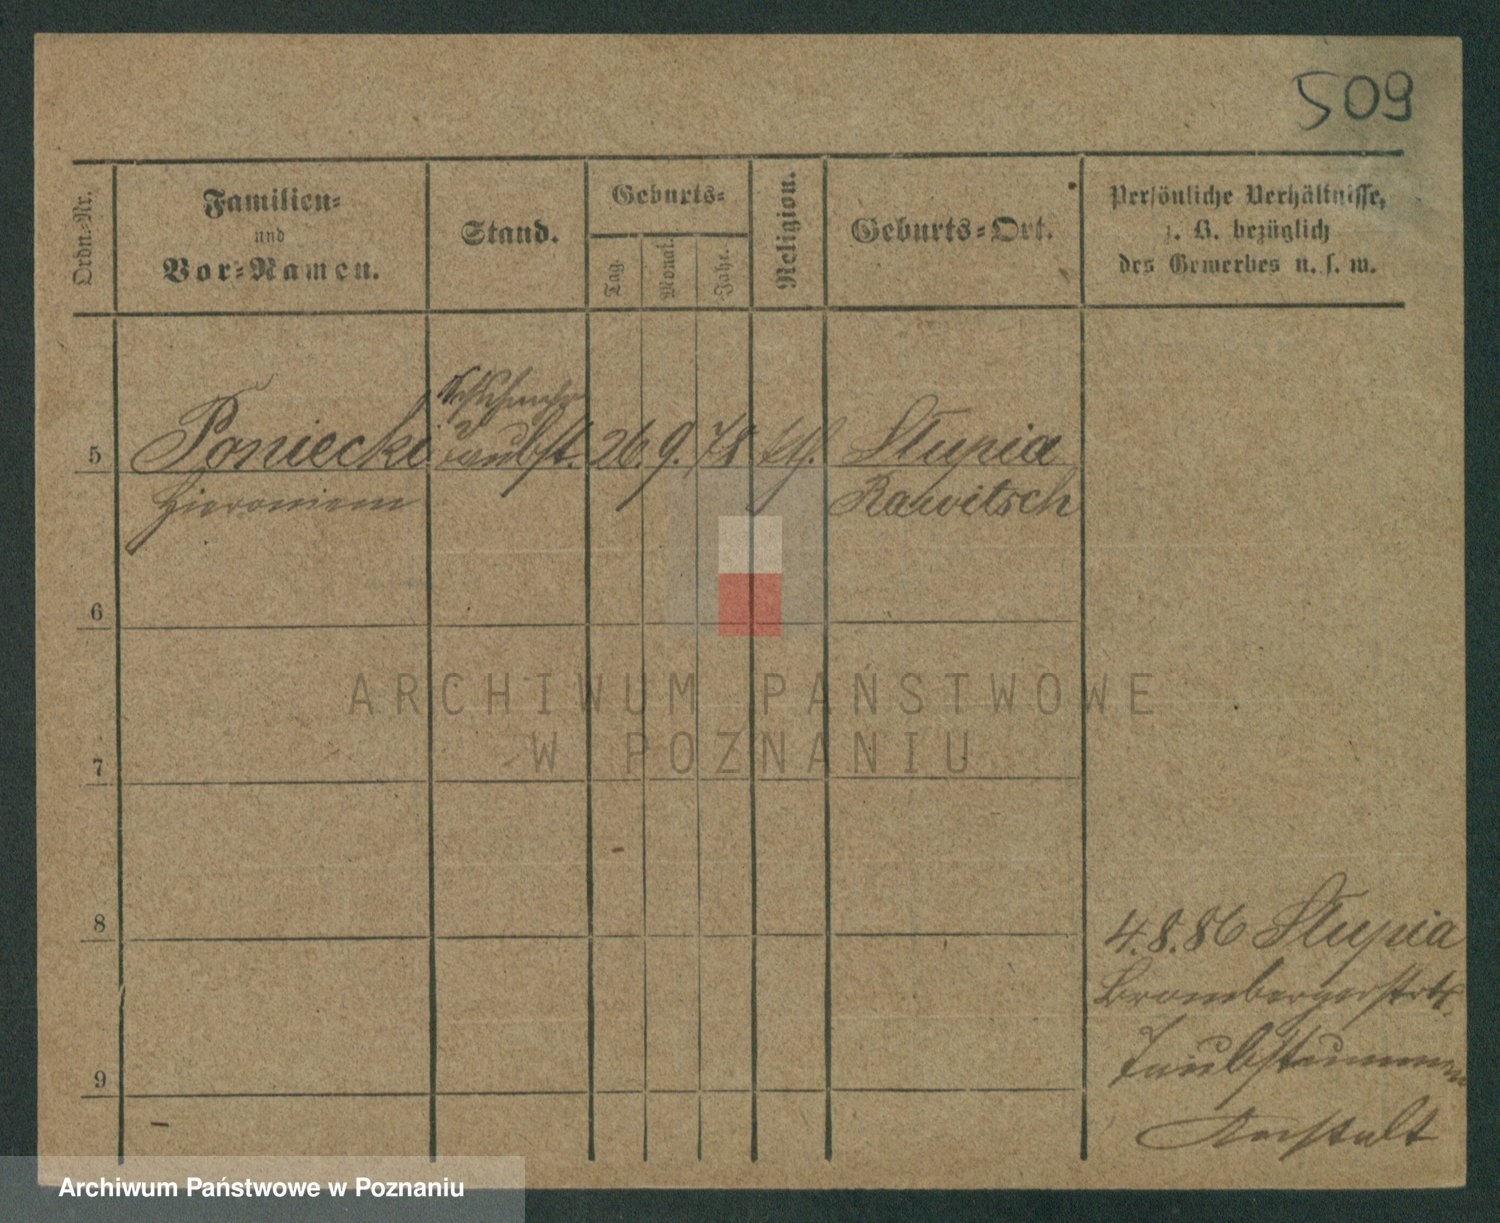 509
Ordn.-Nr.
Familien-
und
Vor-Namen.
Stand.
Geburts-
Tag.
Monat.
Jahr.
Religion.
Geburts-Ort.
Persönliche Verhältnisse,
z. B. bezüglich
des Gewerbes u. s. w.
5 Poniecki 26. 9. 78 kth. Slupia
Hieroniem Rawitsch
6
ARCHIWUM PAŃSTWOWE
W POZNANIU
7
8
4. 8. 86 Slupia
Brombergerstr
9
Taubstummen
Anstalt
Archiwum Państwowe w Poznaniu